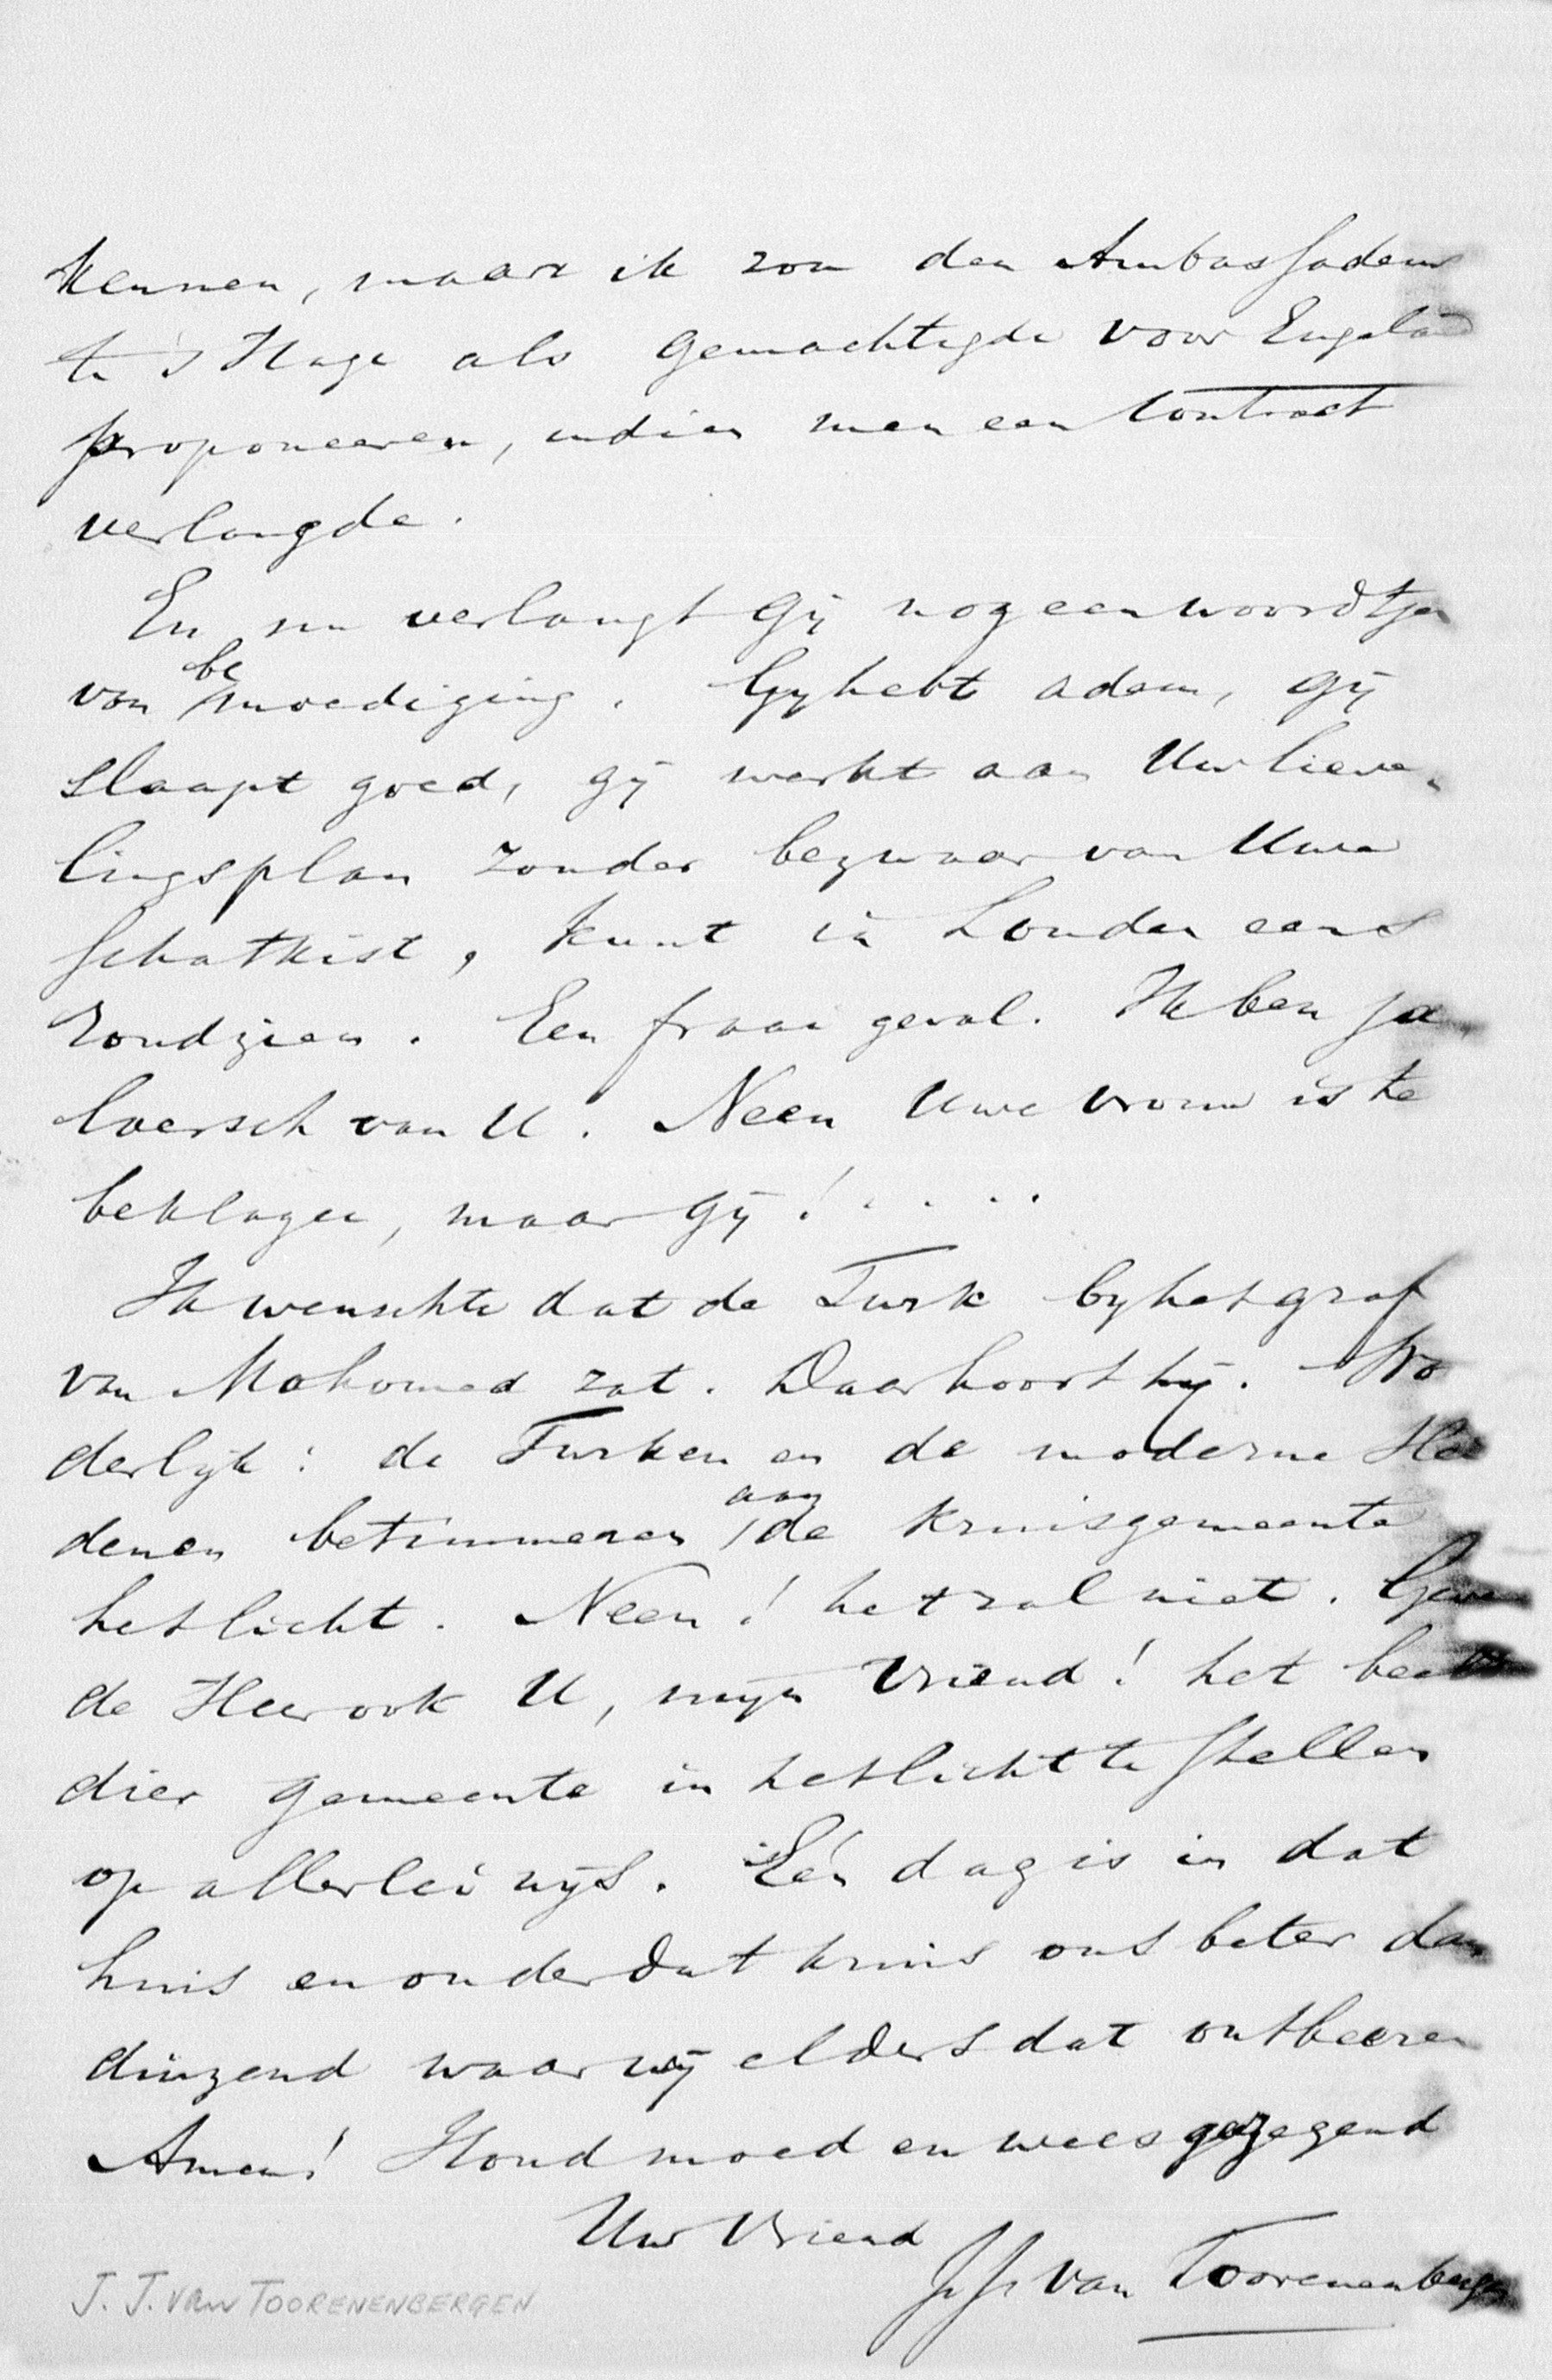 kennen, maar ik zou den Ambassadeur
te 's Hage als gemachtigde voor Engeland
proponeeren, indien men een Contract
verlangde.
En nu verlangt Gij nog een woordtjen
van bemoediging. Gy hebt adem, gij
slaapt goed, gij werkt aan Uw lieve-
lingsplan zonder bezwaar van Uwe
schatkist, kunt in Londen eens
rondzien. Een fraai geval. Ik ben ja
loersch van U. Neen Uwe vrouw is te
beklagen, maar gij! . . . .
Ik wenschte dat de Turk by het graf
van Mahomed zat. Daar hoort hij.
derlijk: de Turken en de moderne Hei
denen betimmeren aan de Kruisgemeente
het licht. Neen! het zal niet. Geve
de Heer ook U, mijn Vriend! het
dier gemeente in het licht te stellen
op allerlei wijs. Eén dag is in dat
huis en onder dat kruis ons beter dan
duizend waar wij elders dat ontbeeren
Amen! Houd moed en wees gezegend
Uw Vriend
JJ van Toorenenbergen
J. J. van TOORENENBERGEN